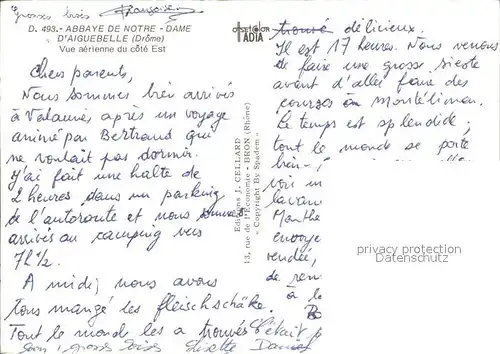 grosses bises Françoise
D. 493. - ABBAYE DE NOTRE - DAME
D'AIGUEBELLE (Drôme)
Vue aérienne du côté Est
Chers parents,
Nous sommes bien arrivés
à Valaurie après un voyage
animé par Bertrand qui
ne voulait pas dormir.
J'ai fait une halte de
2 heures dans un parking
de l'autoroute et nous sommes
arrivés au camping vers
7h 1/2.
A midi, nous avons
tous mangé les fleischschäke.
Tout le monde les a trouvés
grosses bises Lisette
OFFSET COLOR
IADIA
Editions J. CELLARD
13, rue de l'Economie - BRON (Rhône)
« Copyright By Spadem »
trouvé délicieux.
Il est 17 heures. Nous venons
de faire une grosse sieste
avant d'aller faire des
courses à Montélimar.
Le temps est splendide ;
tout le monde se porte
bien
voir
lavan
Monthe
envoye
vendée,
de ren
à la
C'était p
privacy protection
Datenschutz